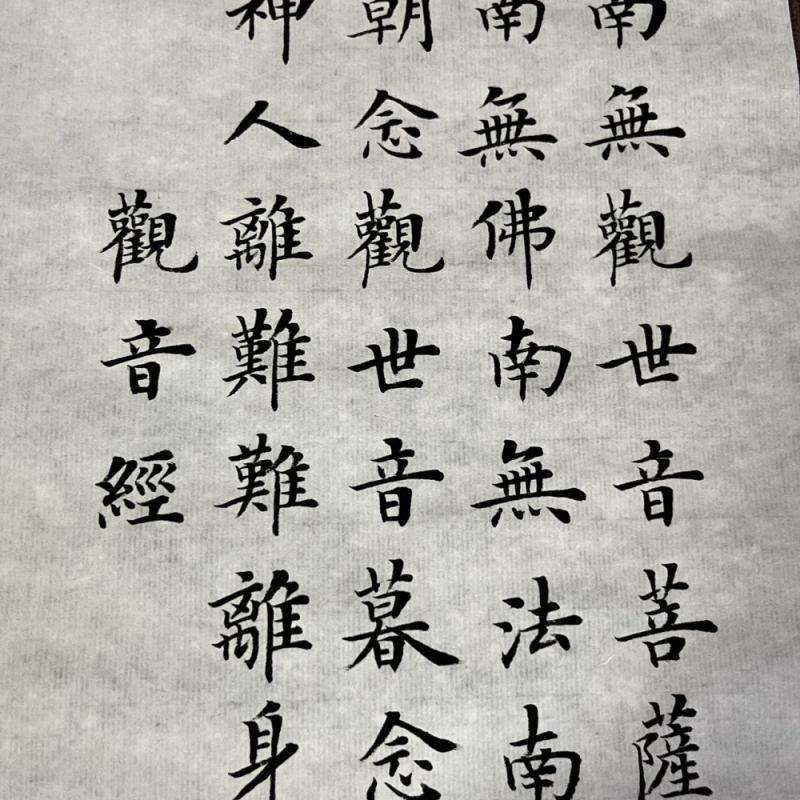 南無觀世音菩薩
南無佛南無法南
朝念觀世音暮念
神人離難難離身
觀音經